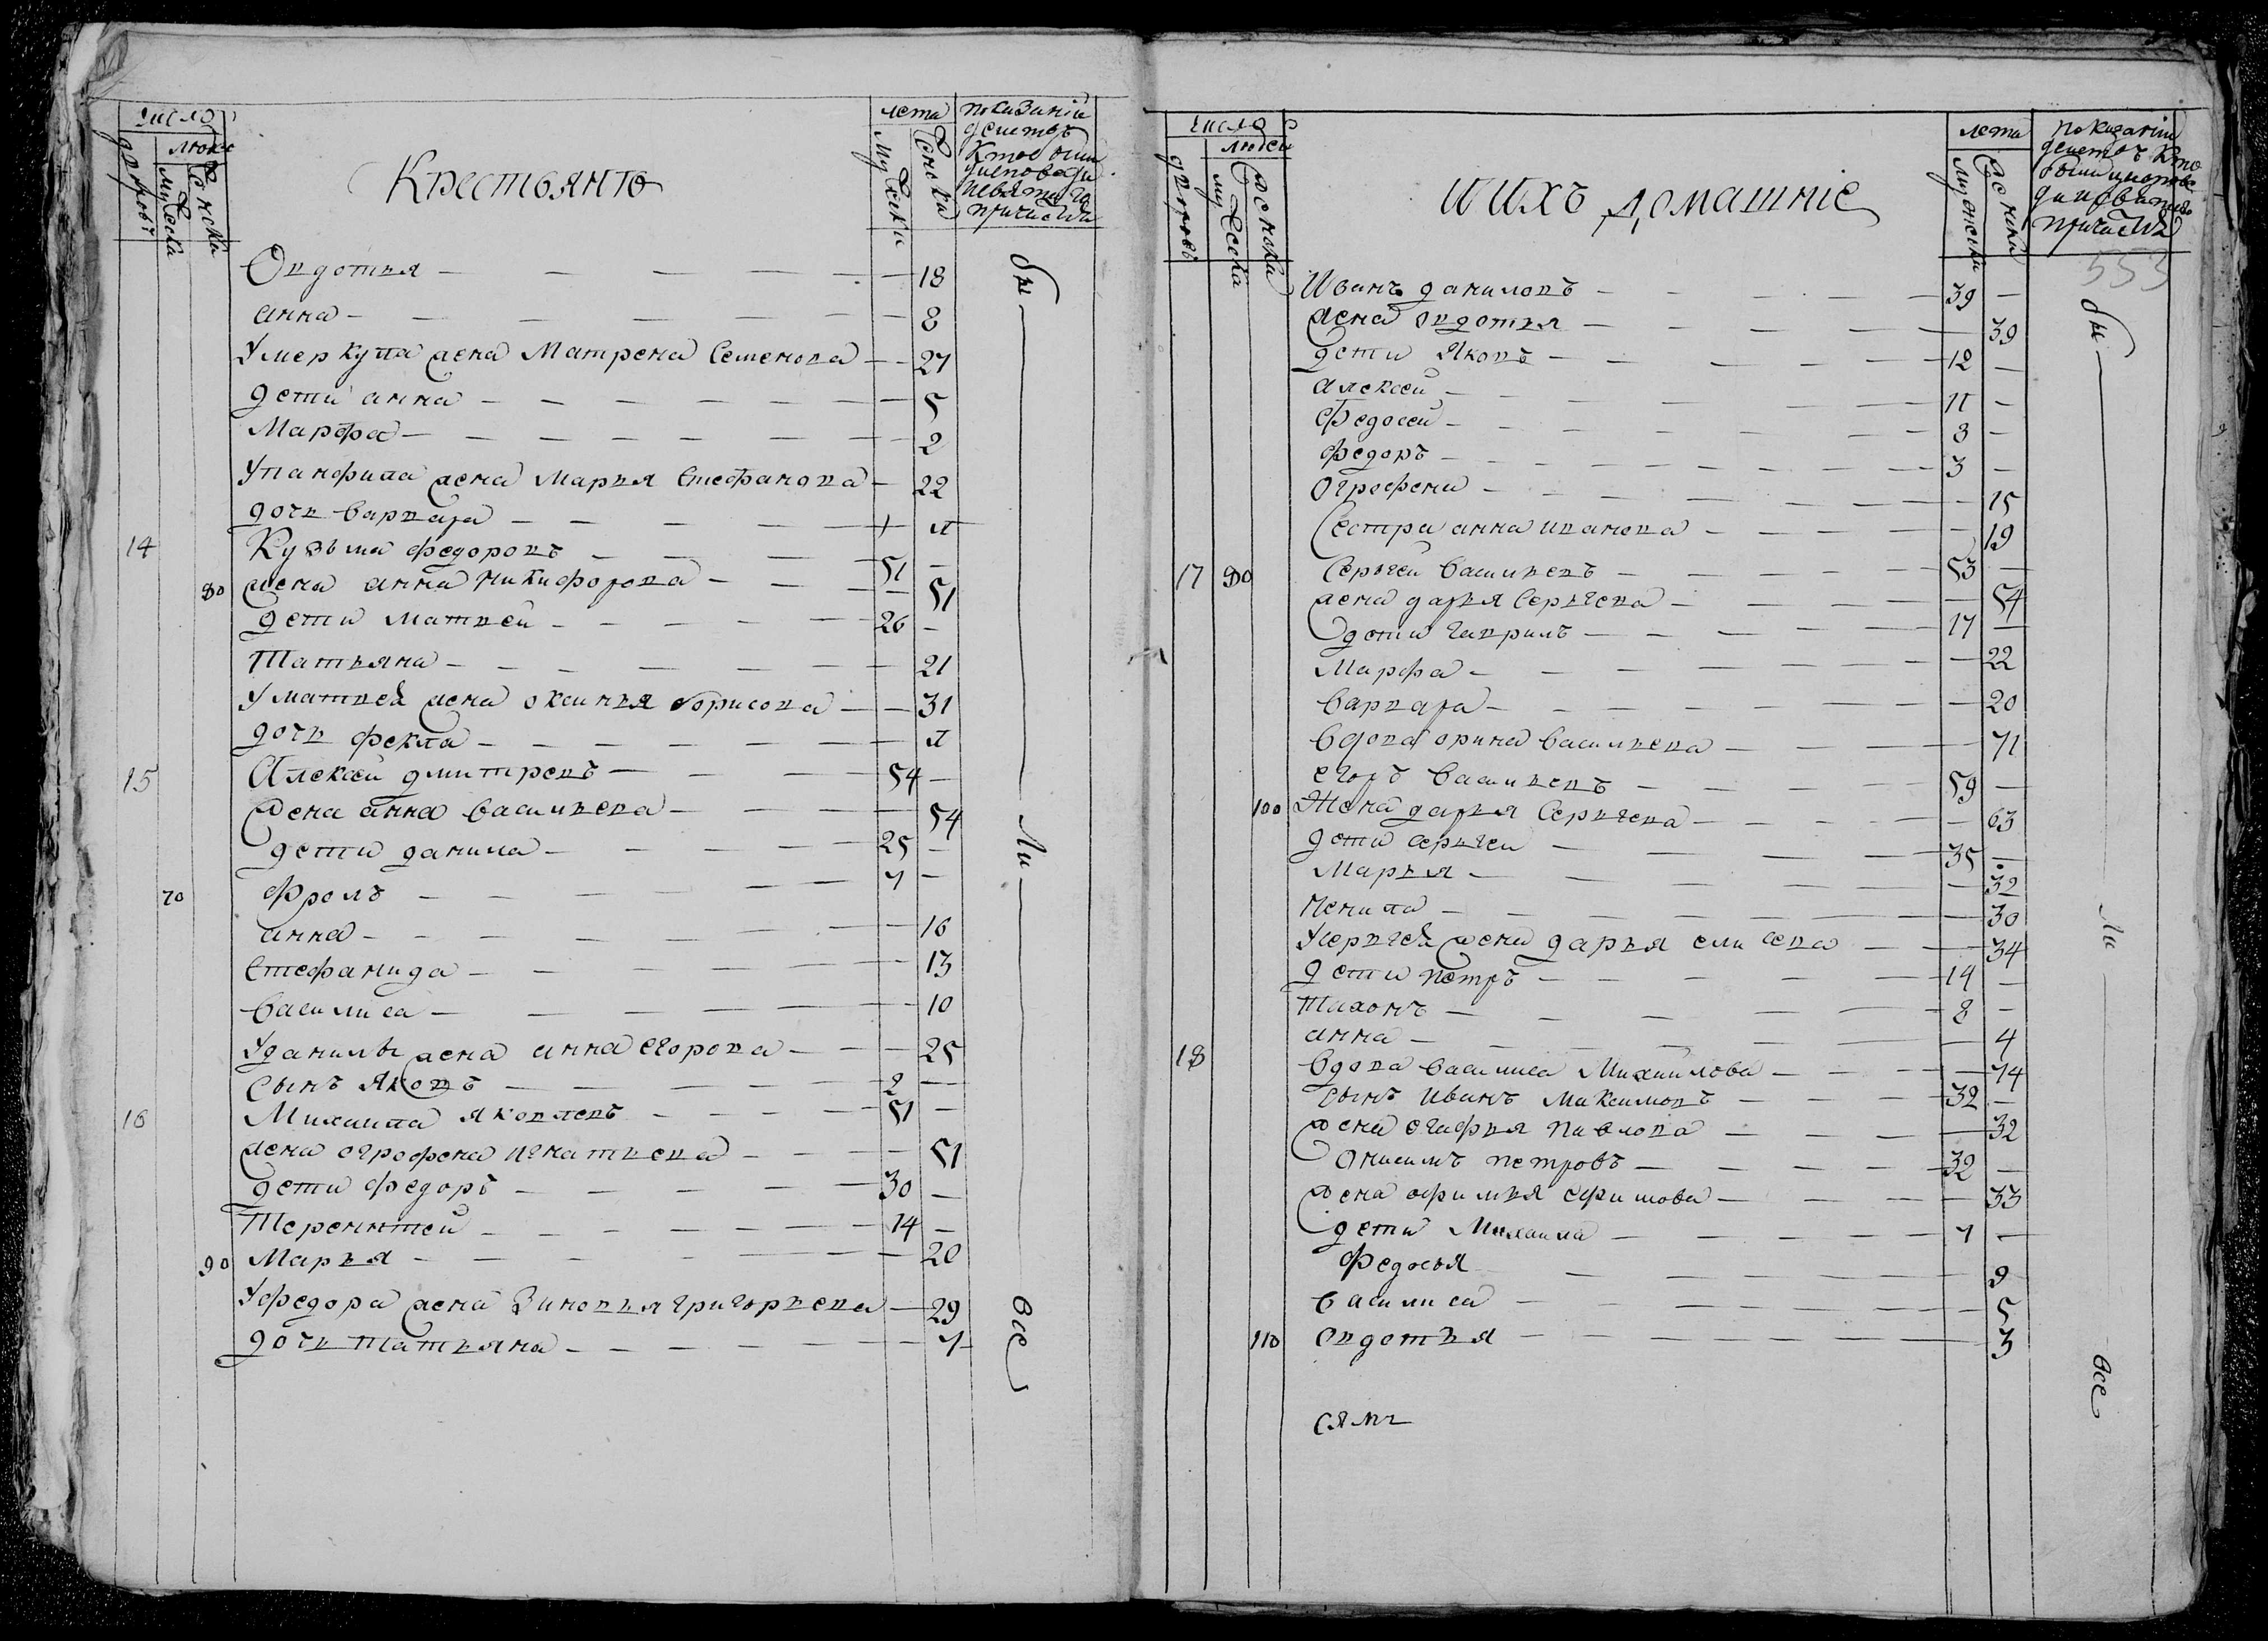 число
людей
дворовъ
мужеска
женска
Крестьяне
лета
мужески
женски
показаніи
Овдотья — 18
анна — 8
Умеркула жена Матрена Семенова — 27
дети анна — 5
Марфа — 2
Упанфила жена Марья Стефанова — 22
дочь варвара — 1
14 Кузьма федоровъ — 51 —
80 жена анна Никифорова — 51
дети матвей — 26 —
Татьяна — 21
Уматвея жена оксинья борисова — 31
дочь фекла —
15 Алексей дмитревъ — 54 —
жена анна васильева — 54
дети данила — 25 —
70 Фролъ — 7 —
анна — 16
Стефанида — 13
василиса — 10
Уданилы жена анна егорова — 25
сынъ Яковъ — 2 —
16 Михаила яковлевъ — 51 —
жена огрофена игнатьева — 51
дети федоръ — 30 —
Терентей — 14 —
90 Марья — 20
Уфедора жена Зиновья григорьева — 29
дочь татьяна — 7
бы
ли
все
число
людей
дворовъ
мужеска
женска
и ихъ домашніе
лета
мужески
женски
показаніи
553
Иванъ даниловъ — 39 —
жена овдотья — 39
дети Яковъ — 12 —
алексей — 11 —
Федосей — 8 —
федоръ — 3 —
огрофена — 15
Сестра анна иванова — 19
17 80 Сергей васильевъ — 53 —
жена дарья Сергеева — 54
дети гаврилъ — 17 —
Марфа — 22
варвара — 20
вдова орина васильева — 71
егоръ васильевъ — 59 —
100 Жена дарья Сергеева — 63
дети сергеи — 35 —
Марья — 32
Ненила — 30
Усергея жена дарья елисева — 34
дети петръ — 14 —
Тихонъ — 8 —
анна — 4
18 вдова василиса Михаилова — 74
сынъ иванъ Максимовъ — 32 —
жена огафья павлова — 32
Онисимъ петровъ — 32 —
жена офимья ефимова — 33
дети Михаила — 7 —
Федосья — 9
василиса — 5
110 овдотья — 3
бы
ли
все
сямъ